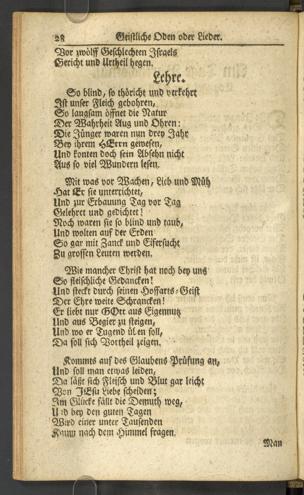 28 Geistliche Oden oder Lieder.
Vor zwölff Geschlechten Israels
Gericht und Urtheil hegen.
Lehre.
So blind, so thöricht und verkehrt
Ist unser Fleisch gebohren,
So langsam öffnet die Natur
Der Wahrheit Aug und Ohren:
Die Jünger waren nun drey Jahr
Bey ihrem HErrn gewesen,
Und konten doch sein Absehn nicht
Aus so viel Wundern lesen.
Mit was vor Wachen, Lieb und Müh
Hat Er sie unterrichtet,
Und zur Erbauung Tag vor Tag
Gelehret und gedichtet!
Noch waren sie so blind und taub,
Und wolten auf der Erden
So gar mit Zanck und Eifersucht
Zu grossen Leuten werden.
Wie mancher Christ hat noch bey uns
So fleischliche Gedancken!
Und steckt durch seinen Hoffarts-Geist
Der Ehre weite Schrancken!
Er liebt nur GOtt aus Eigennutz
Und aus Begier zu steigen,
Und wo er Tugend üben soll,
Da soll sich Vortheil zeigen.
Kommts auf des Glaubens Prüfung an,
Und soll man etwas leiden,
Da läßt sich Fleisch und Blut gar leicht
Von JEsu Liebe scheiden;
Im Glücke fällt die Demuth weg,
Und bey den guten Tagen
Wird einer unter Tausenden
Kaum nach dem Himmel fragen.
Man